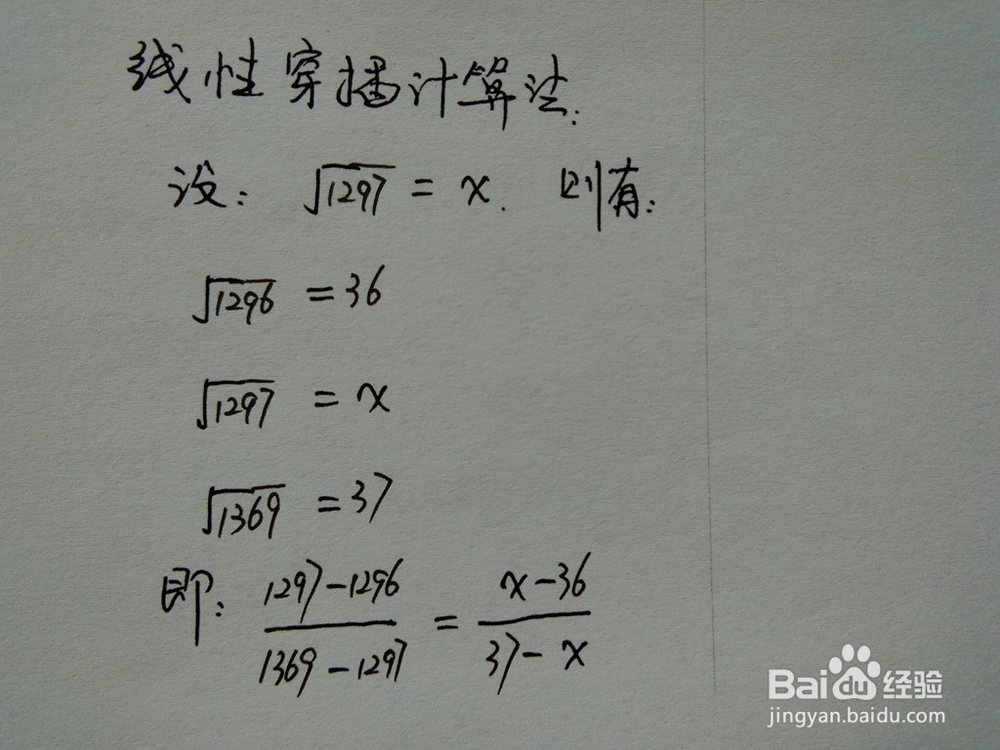 线性穿插计算法:
设: √1297 = x. 则有:
√1296 = 36
√1297 = x
√1369 = 37
即: (1297-1296)/(1369-1297) = (x-36)/(37-x)
Baidu经验
jingyan.baidu.com